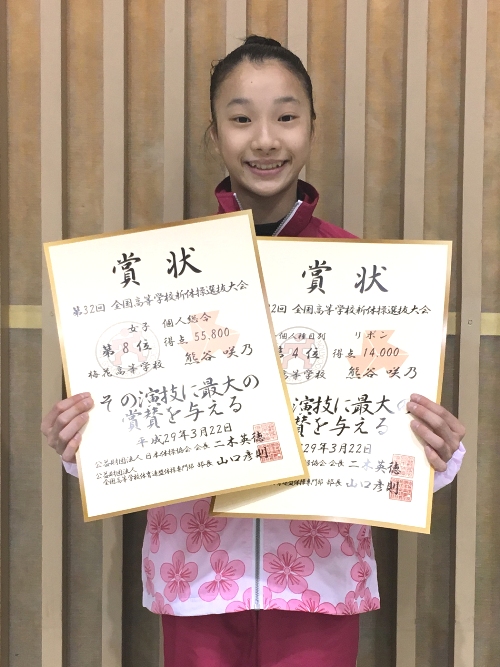 賞状
第32回 全国高等学校新体操選抜大会
女子 個人総合
第8位 得点 55.800
梅花高等学校 熊谷 咲乃
その演技に最大の
賞賛を与える
平成29年3月22日
公益財団法人 日本体操協会 会長 二木英徳
公益財団法人
全国高等学校体育連盟体操専門部 部長 山口彦則
賞状
2回 全国高等学校新体操選抜大会
個人種目別 リボン
第4位 得点 14.000
高等学校 熊谷 咲乃
演技に最大の
賛を与える
平成29年3月22日
操協会 会長 二木英徳
体操専門部 部長 山口彦則